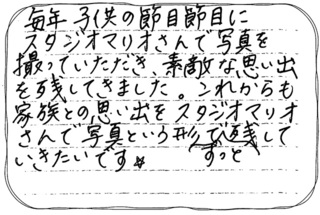 毎年 子供の節目節目に
スタジオマリオさんで写真を
撮っていただき、素敵な思い出
を残してきました。これからも
家族との思い出をスタジオマリオ
さんで写真という形でずっと残して
いきたいです☆